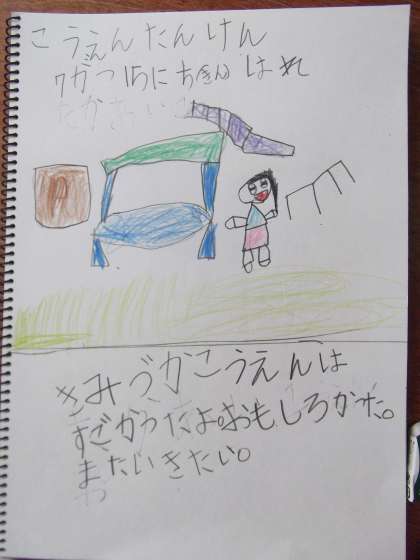 こうえんたんけん
7がつ15にち(きん) はれ
きみづかこうえんは
すごかったよ。おもしろかった。
またいきたい。